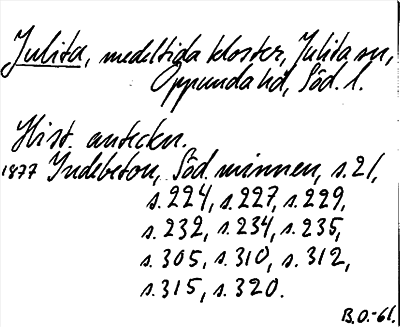 Julita, medeltida kloster, Julita sn,
Oppunda hd, Söd. l.
Hist. anteckn.
1877 Indebetou, Söd. minnen, s. 21,
s. 224, s. 227, s. 229,
s. 232, s. 234, s. 235,
s. 305, s. 310, s. 312,
s. 315, s. 320.
B.O.-61.